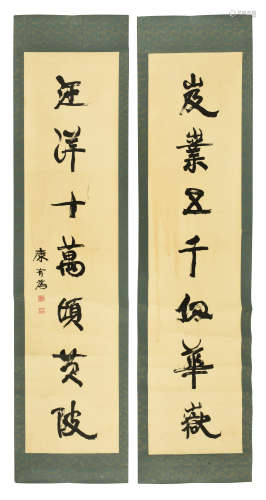 岌業五千仞華嶽
汪洋十萬頃黃陂
康有為